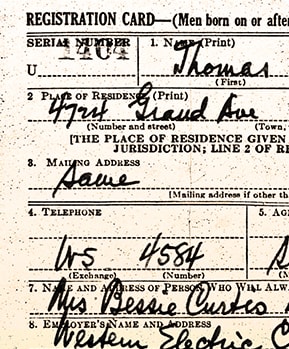 REGISTRATION CARD—(Men born on or after
SERIAL NUMBER 1. NAME (Print)
U 1464 Thomas
(First)
2 PLACE OF RESIDENCE (Print)
4724 Grand Ave
(Number and street) (Town,
[THE PLACE OF RESIDENCE GIVEN
JURISDICTION; LINE 2 OF RE
3. MAILING ADDRESS
Same
[Mailing address if other th
4. TELEPHONE 5. AG
4584
(Exchange) (Number)
7. NAME AND ADDRESS OF PERSON WHO WILL ALWA
Mrs Bessie Curtis
8. EMPLOYER'S NAME AND ADDRESS
Western Electric C